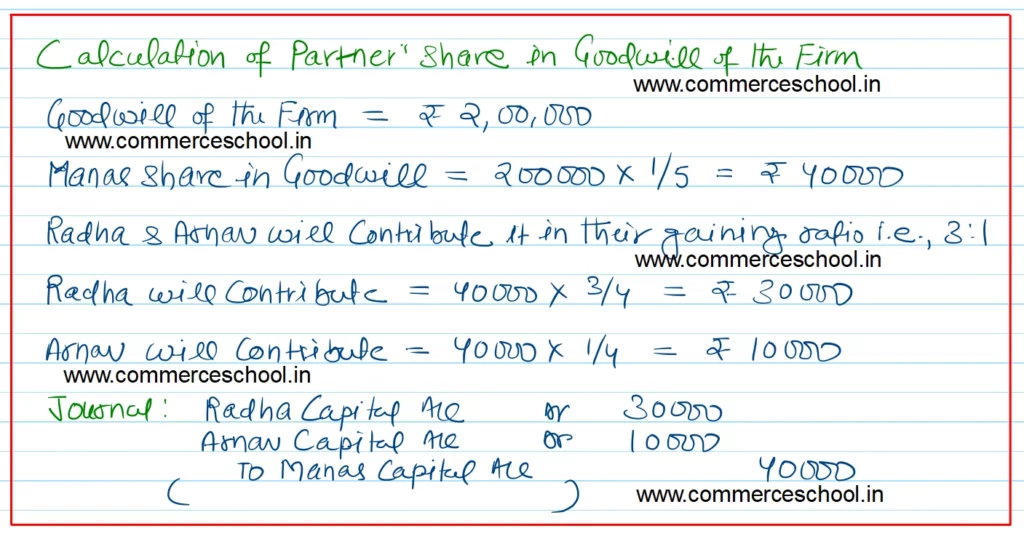 Calculation of Partner's Share in Goodwill of the Firm
www.commerceschool.in
Goodwill of the Firm = ₹ 2,00,000
www.commerceschool.in
Manas Share in Goodwill = 200000 × 1/5 = ₹ 40000
Radha & Arnav will Contribute it in their gaining ratio i.e., 3:1
www.commerceschool.in
Radha will Contribute = 40000 × 3/4 = ₹ 30000
Arnav will Contribute = 40000 × 1/4 = ₹ 10000
www.commerceschool.in
Journal: Radha Capital A/c Dr 30000
Arnav Capital A/c Dr 10000
To Manas Capital A/c 40000
( )
www.commerceschool.in